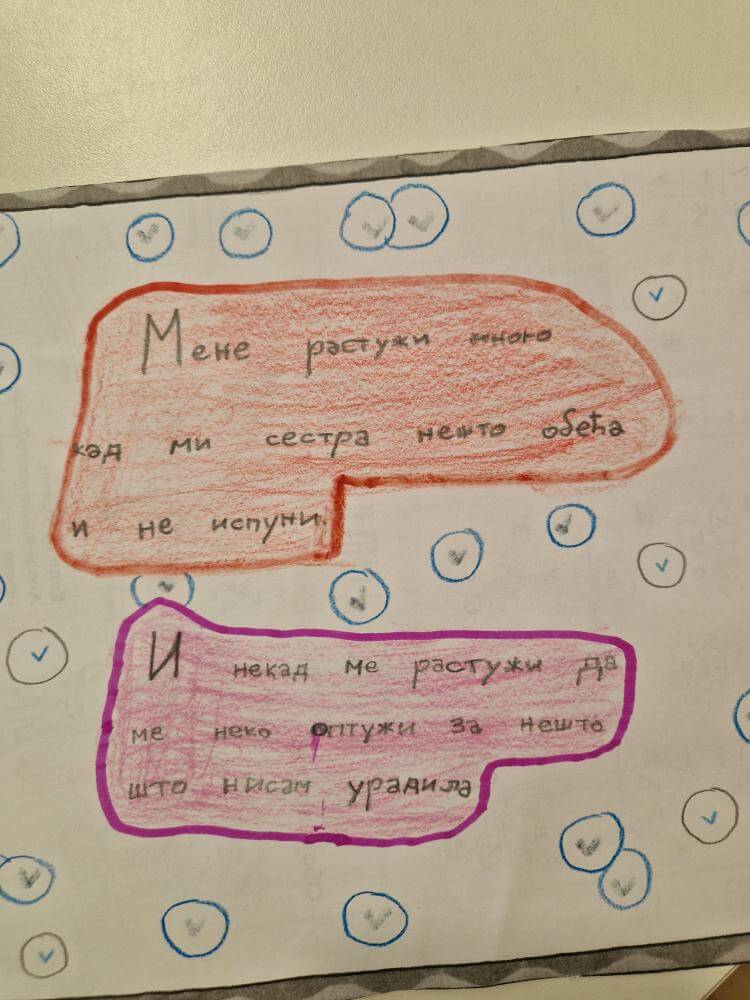 Мене растужи много
кад ми сестра нешто обећа
и не испуни.
И некад ме растужи да
ме неко оптужи за нешто
што нисам урадила